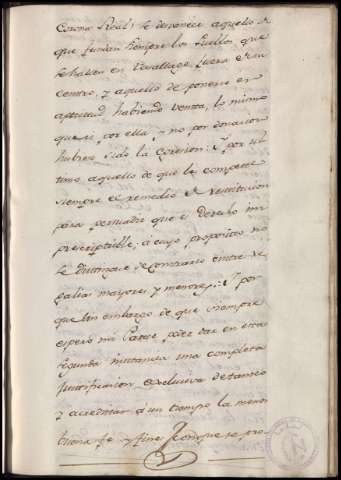 Corona Real: se desvanece aquello de
que siempre los Pueblos, que
se hallen en vasallage, fuera de su
centro, y aquello de ponerse en
aptitud habiendo venta, lo mismo
que si por ella, y no por donacion
hubiera sido la cesion: Y por ul-
timo aquello de que le compete
siempre el remedio de restitucion
para persuadir que es derecho im-
prescriptible; á cuyo proposito no
se distingue de contrario entre re-
galias mayores y menores: Y por
que sin embargo de que siempre
espero mi Parte poder dar en esta
segunda instancia una completa
justificacion, exclusiva de tanteo
y acreditar á un tiempo la menos
buena fe y fine con que se pro